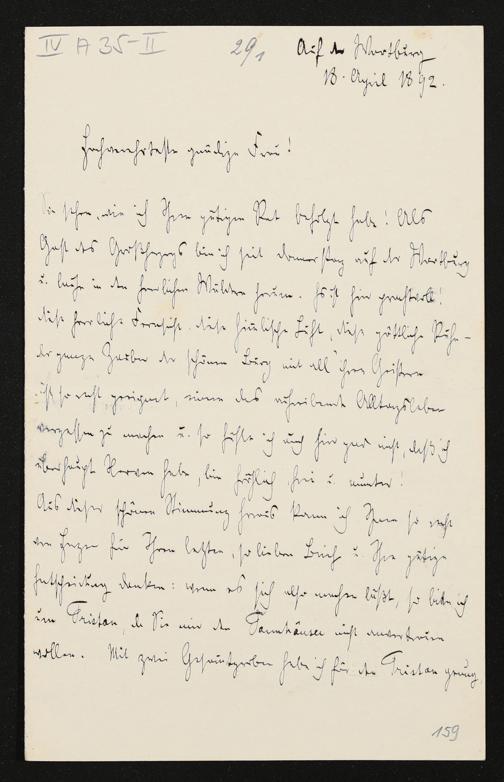 IV A 35-II
29,
Auf der Wartburg
18. April 1892.
Hochverehrteste gnädige Frau!
Sie sehen, wie ich Ihren gütigen Rat befolgt habe! Als
Gast des Großherzogs bin ich seit Donnerstag auf der Wartburg
u. laufe in den herrlichen Wäldern herum. Es ist hier prachtvoll!
diese herrliche Fernsicht, diese himmlische Luft, diese göttliche Ruhe –
der ganze Zauber der schönen Burg mit all' ihren Geistern
ist so recht geeignet, einen das aufreibende Alltagsleben
vergessen zu machen u. so fühle ich auch hier gar nicht, daß ich
überhaupt Nerven habe, bin fröhlich, frei u. munter!
Aus dieser schönen Stimmung heraus kann ich Ihnen so recht
von Herzen für Ihren letzten, so lieben Brief u. Ihre gütige
Entscheidung danken: wenn es sich also machen läßt, so bitte ich
um Tristan, da Sie mir den Tannhäuser nicht anvertrauen
wollen. Mit zwei Gesamtproben habe ich für den Tristan genug,
159